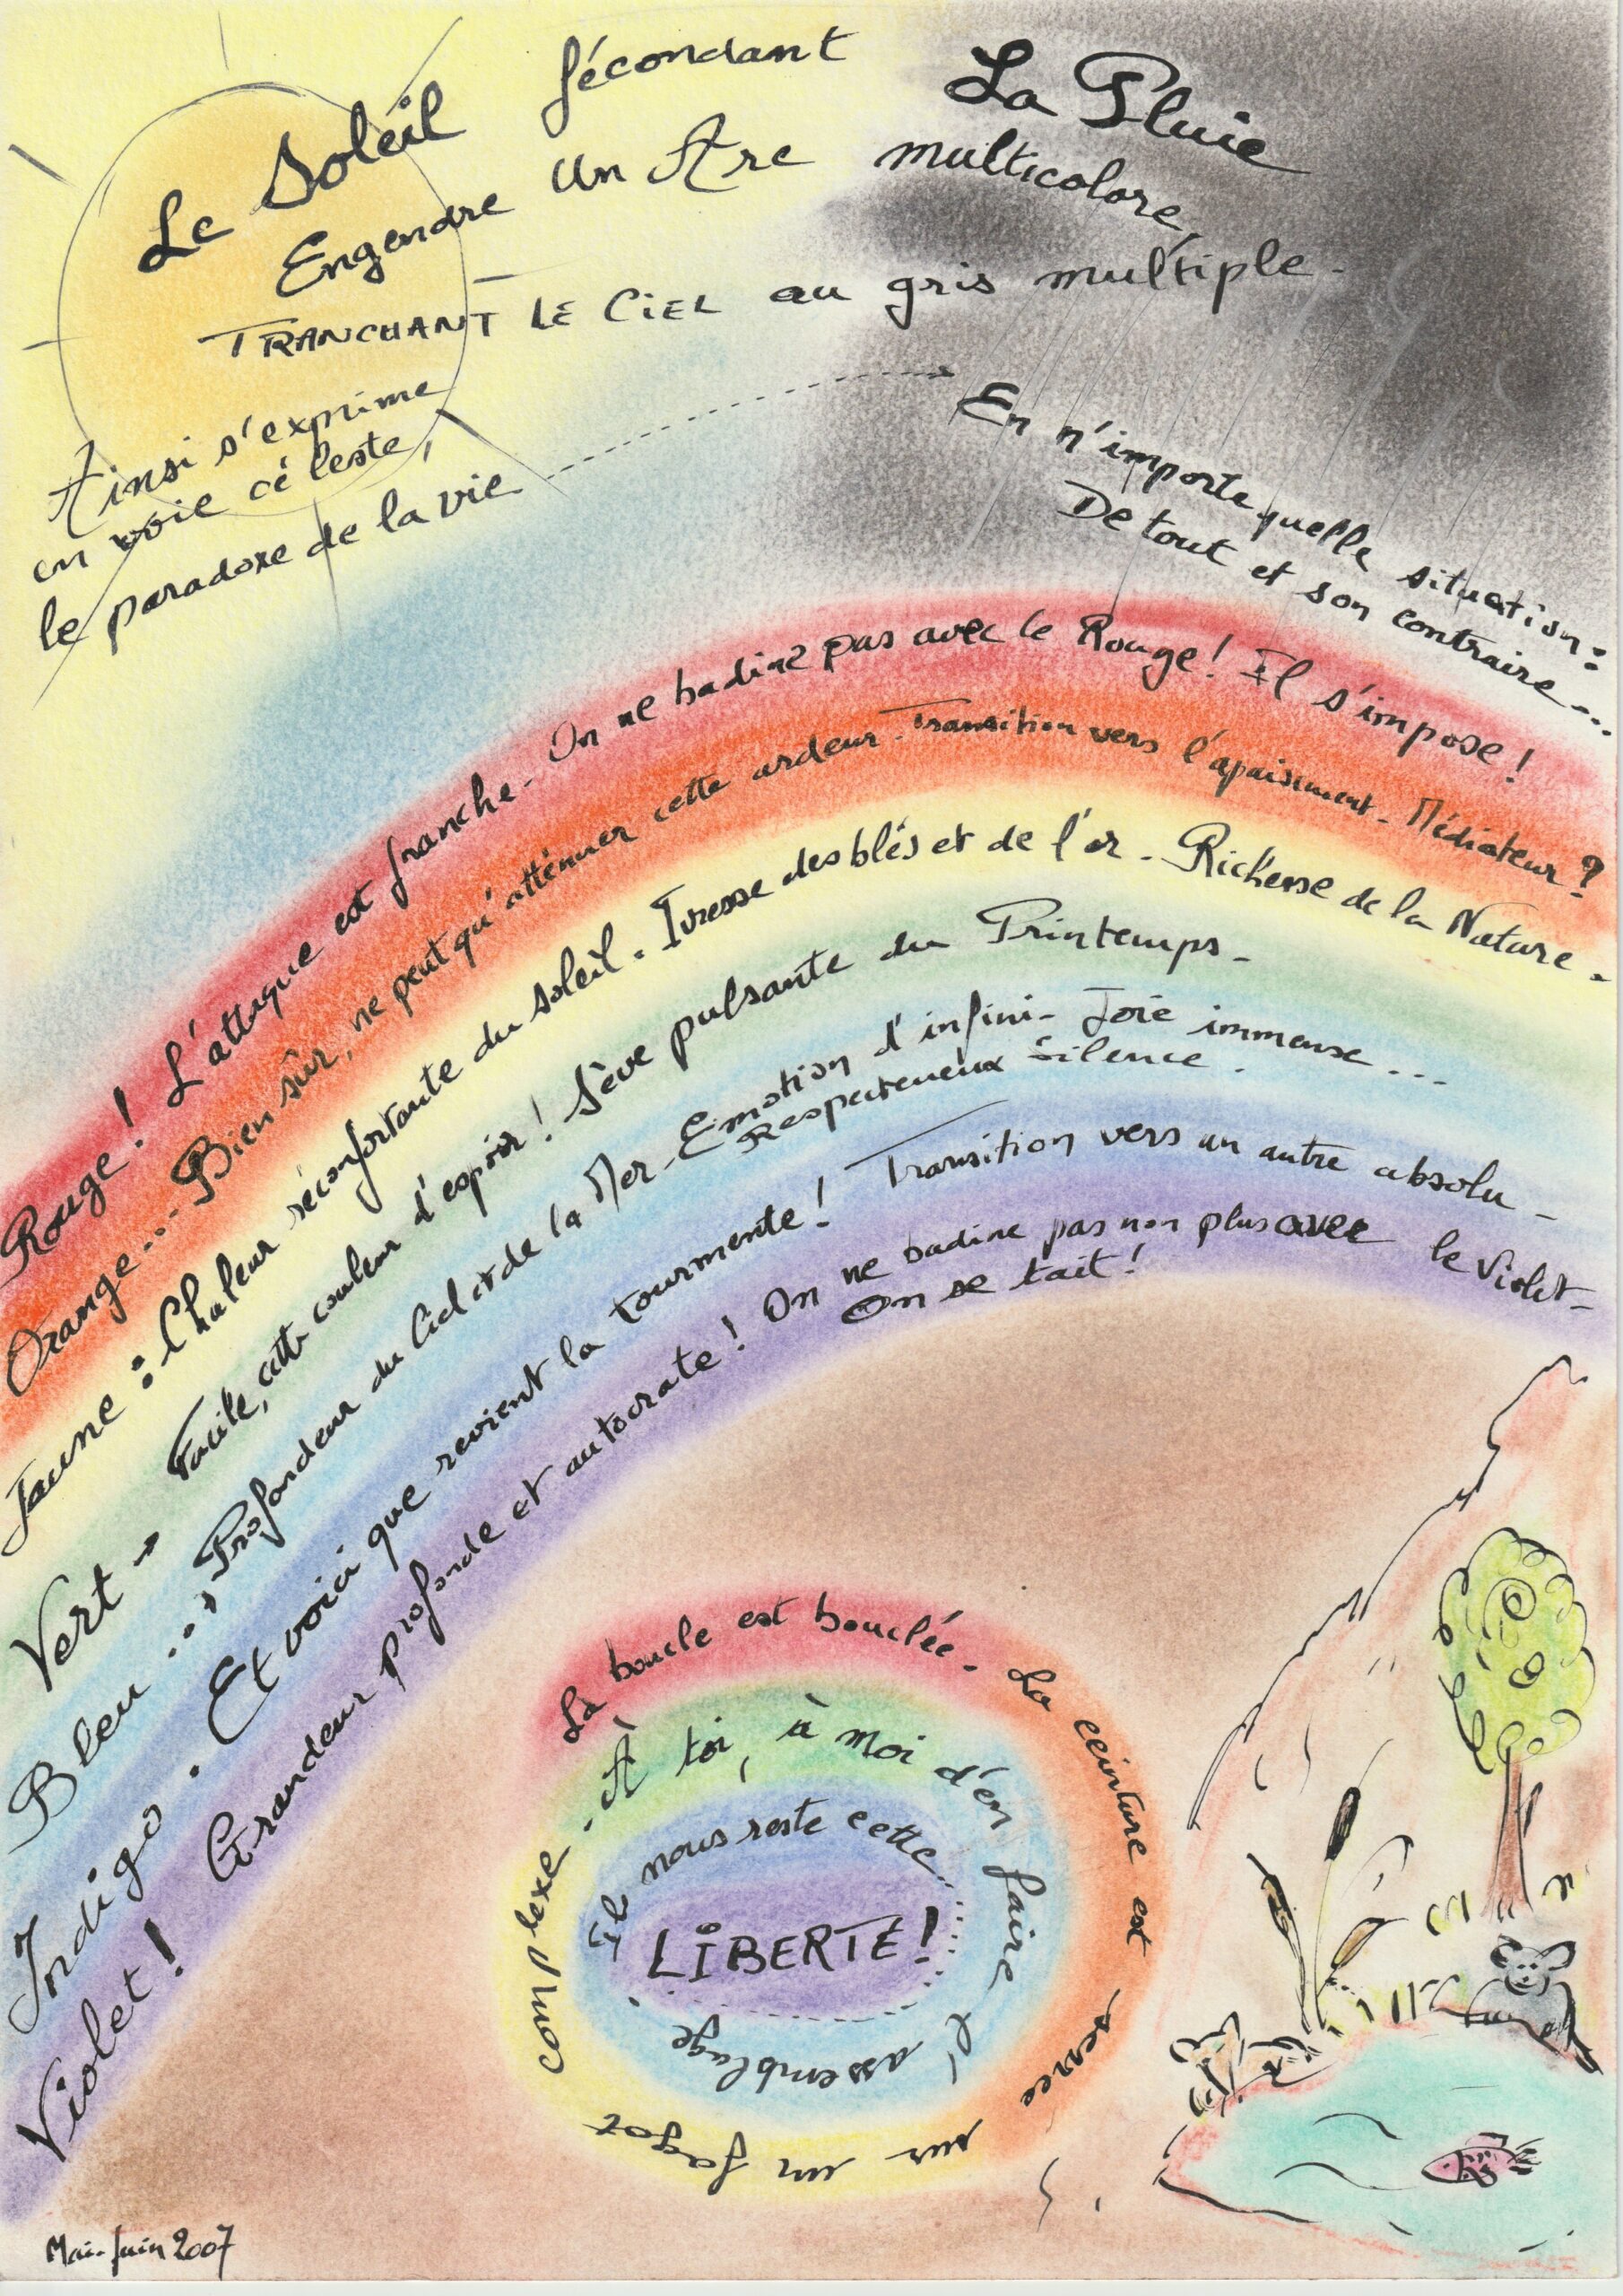 Le Soleil fécondant La Pluie
Engendre Un Arc multicolore,
TRANCHANT LE CIEL au gris multiple.
Ainsi s'exprime
en voie céleste,
le paradoxe de la vie
En n'importe quelle situation :
De tout et son contraire...
Rouge ! L'attaque est franche. On ne badine pas avec le Rouge ! Il s'impose !
Orange... Bien sûr, ne peut qu'atténuer cette ardeur. Transition vers l'apaisement. Médiateur ?
Jaune : Chaleur réconfortante du soleil. Ivresse des blés et de l'or. Richesse de la Nature.
Vert → Facile, cette couleur d'espoir ! Sève pulsante du Printemps.
Bleu ...; Profondeur du Ciel et de la Mer. Emotion d'infini. Joie immense...
Respectueux Silence.
Indigo. Et voici que revient la tourmente ! Transition vers un autre absolu.
Violet ! Grandeur profonde et autocrate ! On ne badine pas non plus avec le Violet.
On se tait !
La boucle est bouclée. La ceinture est serrée sur un fagot complexe. À toi, à moi d'en faire l'assemblage
Il nous reste cette...
LIBERTÉ !
Mai-Juin 2007